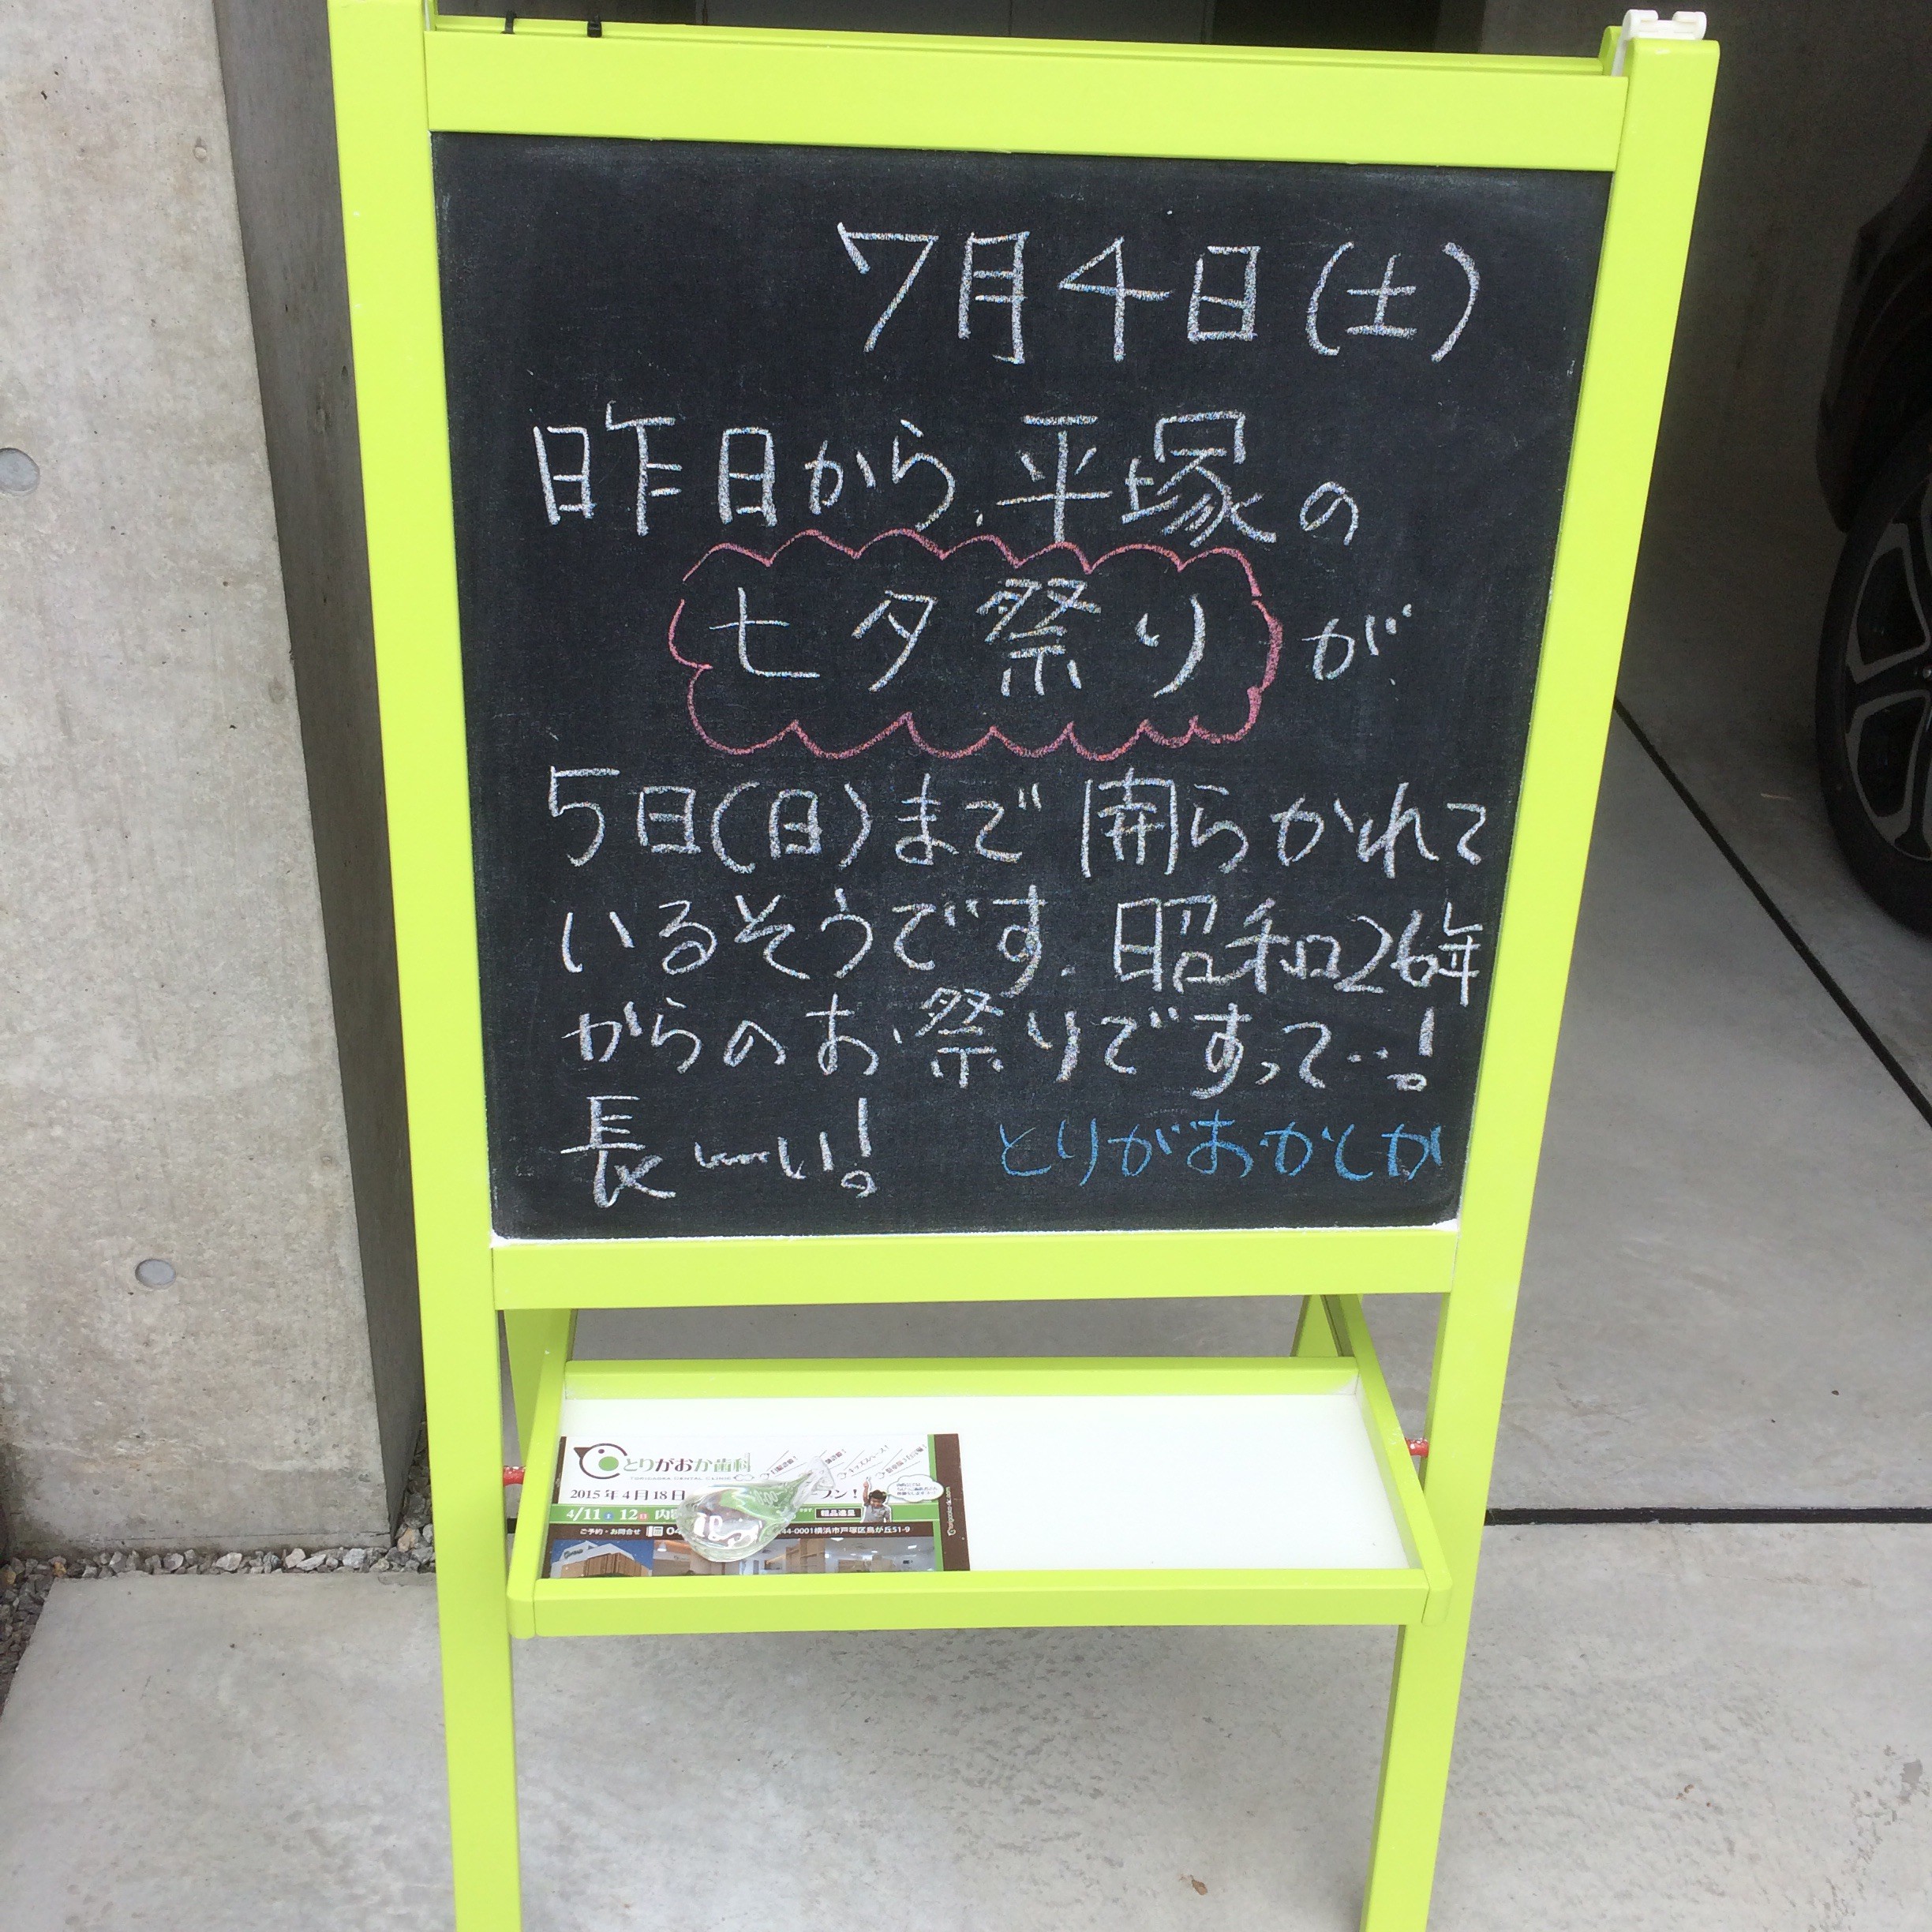 7月4日(土)
昨日から、平塚の
七夕祭りが
5日(日)まで開らかれて
いるそうです。昭和26年
からのお祭りですって…!
長〜い!
とりがおかしか
とりがおか歯科
TORIGAOKA DENTAL CLINIC
2015年4月18日
4/11 土 12 日 内
粗品進呈
ご予約・お問合せ
44-0001横浜市戸塚区鳥が丘51-9